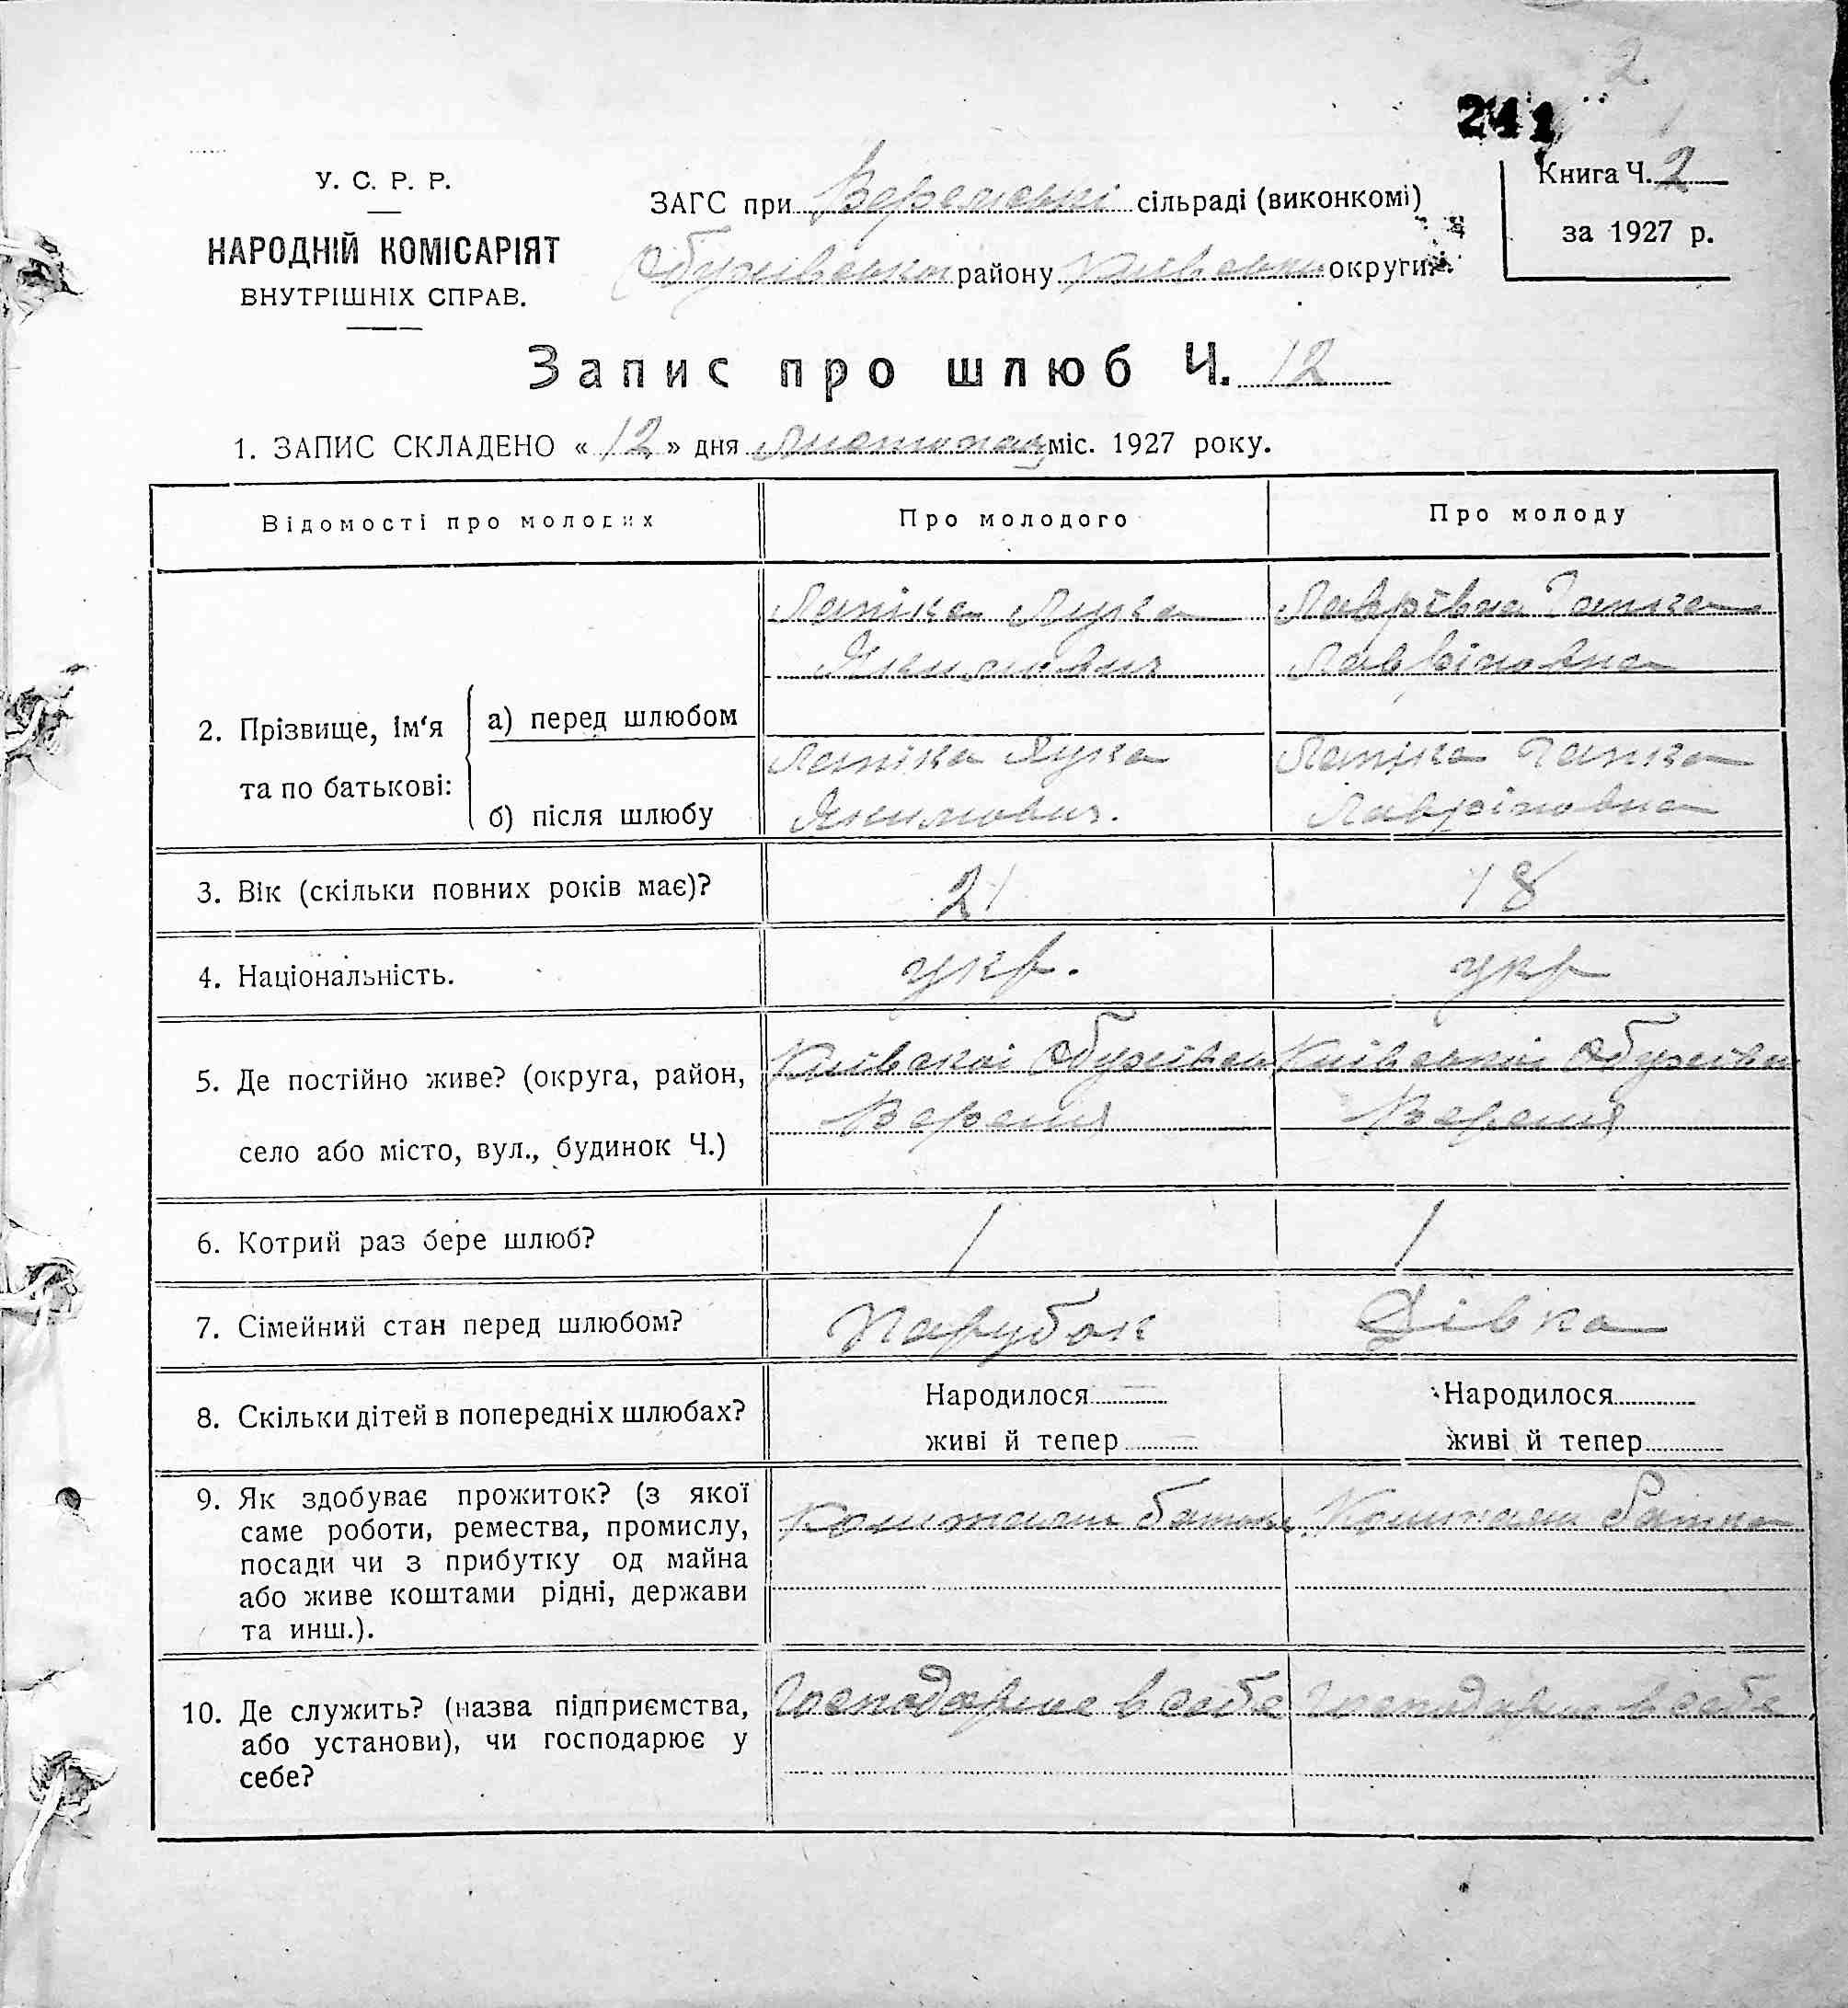 2
241
У. С. Р. Р.
НАРОДНІЙ КОМІСАРІЯТ
ВНУТРІШНІХ СПРАВ.
ЗАГС при Веремській сільраді (виконкомі)
Обухівськ району Київськ округи
Книга Ч. 2
за 1927 р.
Запис про шлюб Ч. 12
1. ЗАПИС СКЛАДЕНО « 12 » дня Листопад міс. 1927 року.
Відомості про молодих
Про молодого
Про молоду
2. Прізвище, Ім'я та по батькові:
а) перед шлюбом
Лапіка Лука
Якимович
Лаврівна Ганка
б) після шлюбу
Лапіка Лука
Якимович.
Лапіка Ганка
3. Вік (скільки повних років має)?
21
18
4. Національність.
укр.
укр
5. Де постійно живе? (округа, район,
село або місто, вул., будинок Ч.)
Київскоі Обухівськ
Веремя
Київськоі Обухівськ
Веремя
6. Котрий раз бере шлюб?
1
1
7. Сімейний стан перед шлюбом?
Парубок
Дівка
8. Скільки дітей в попередніх шлюбах?
Народилося
живі й тепер
Народилося
живі й тепер
9. Як здобуває прожиток? (з якої
саме роботи, ремества, промислу,
посади чи з прибутку од майна
або живе коштами рідні, держави
та инш.).
Коштами батька
Коштами батька
10. Де служить? (назва підприємства,
або установи), чи господарює у
себе?
Господарює в себе
Господарює в себе